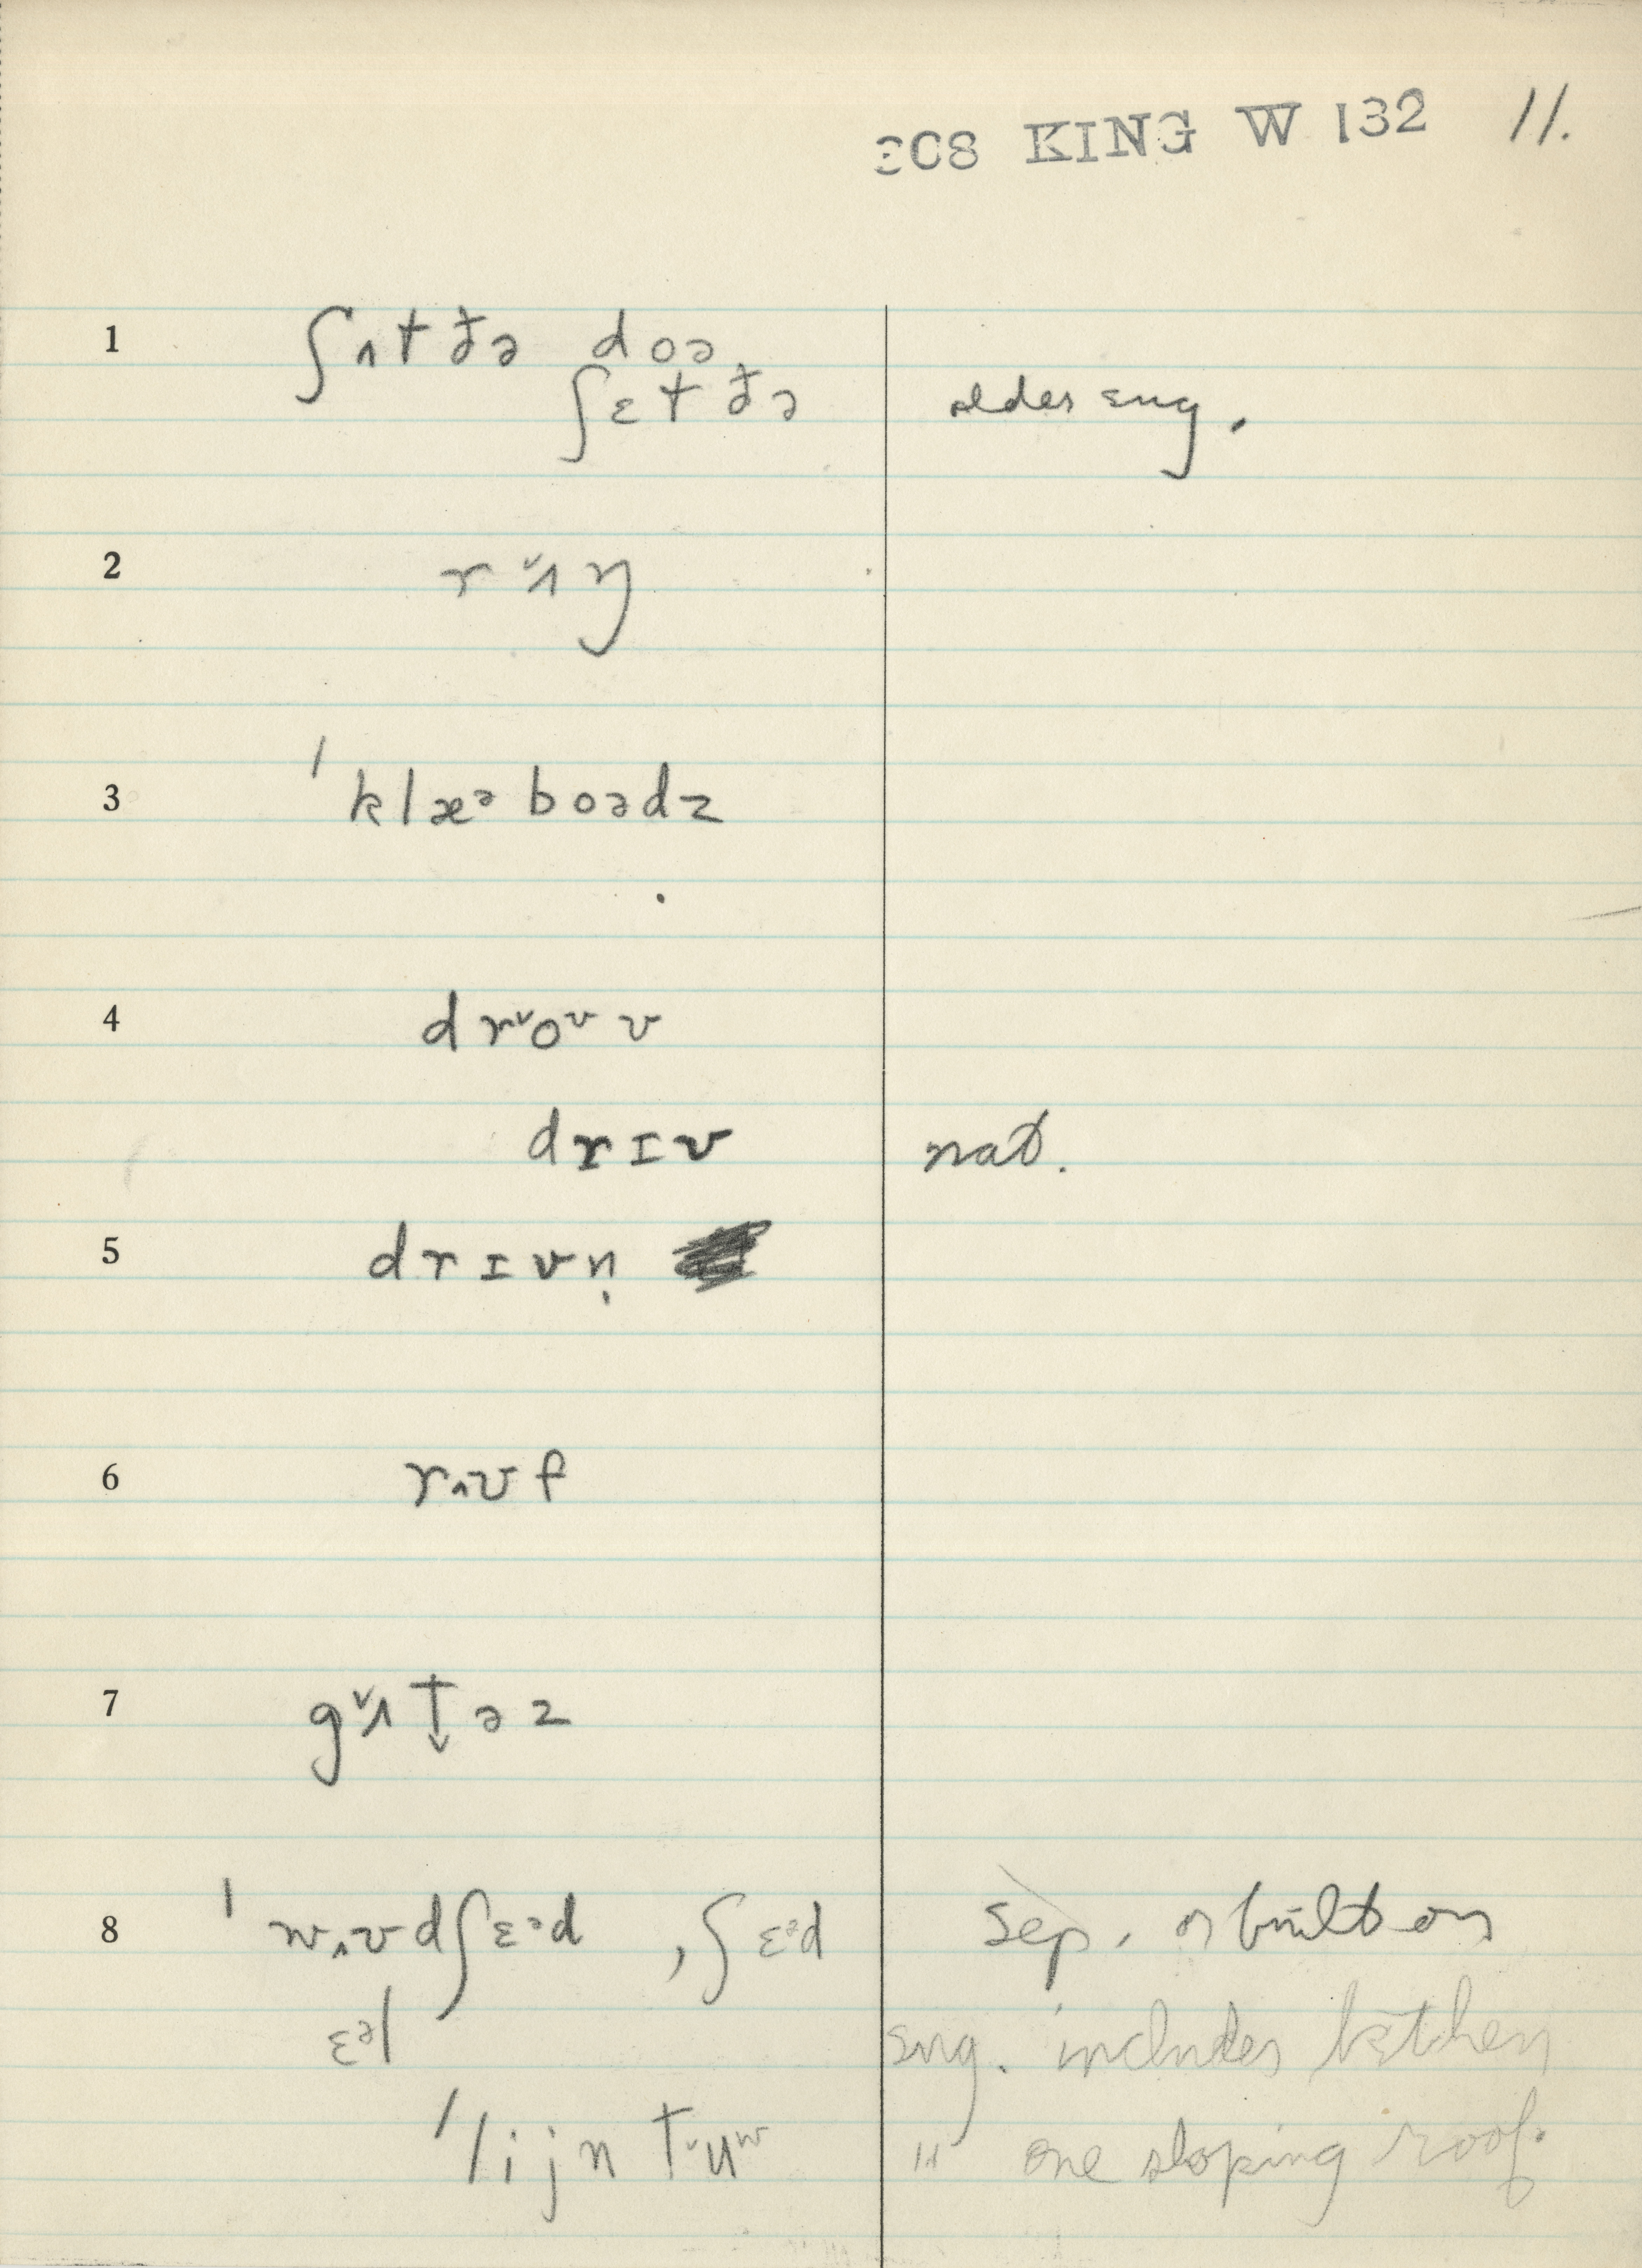 308 KING W 132 11.
1 ʃʌt ðə doə
ʃɛt ðə older eng.
2 r˅ʌŋ
3 ˈklæᵊboədz
4 dr˅oᶷv
drɪv nat.
5 drɪvn̩
6 rʌʊf
7 g˅ʌt̬əz
8 ˈwʌʊdʃɛᵊd , ʃɛᵊd sep. or built on
ɛᵊl eng. includes kitchen
ˈlijn t˅uʷ " one sloping roof.